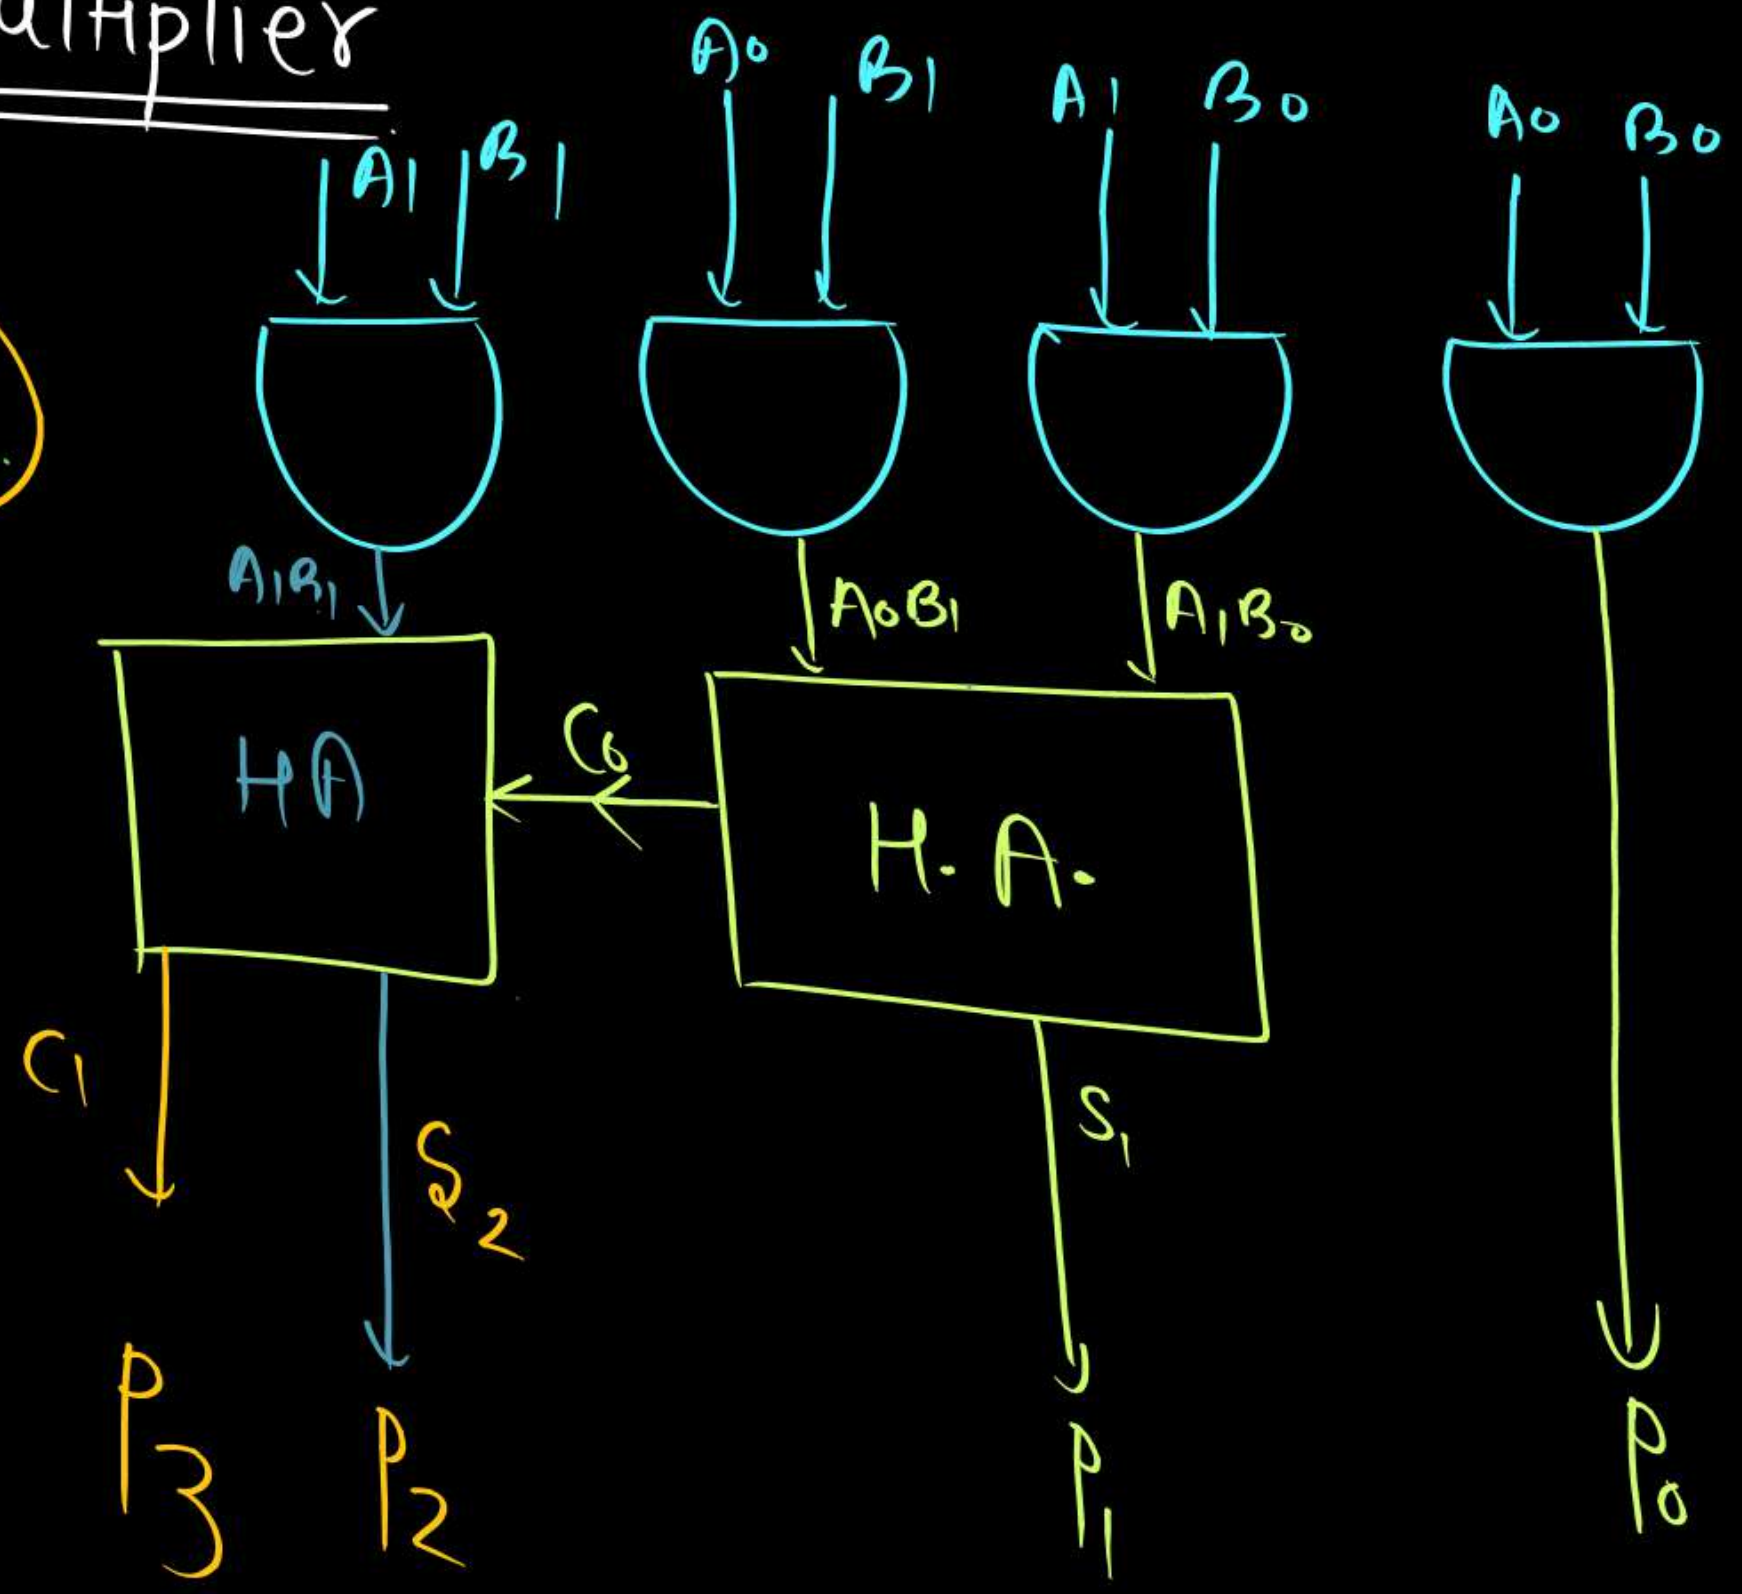 ultiplier
A0 B1 A1 B0 A0 B0
A1 B1
A1B1 A0B1 A1B0
C0
HA H.A.
C1 S2 S1
P3 P2 P1 P0